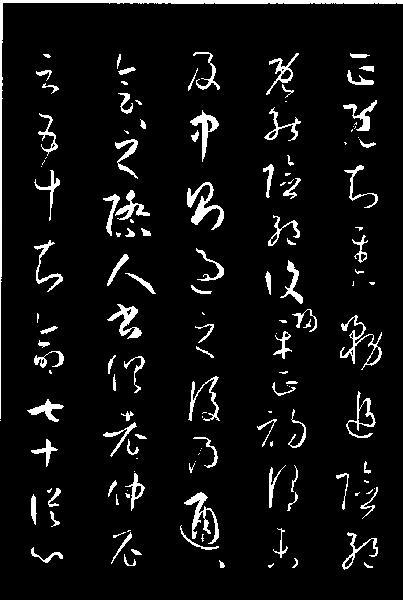 正既知平正務追險絕
既能險絕復歸平正初謂未
及中則過之後乃通、
會、之際人書俱老仲尼
云五十知命七十從心